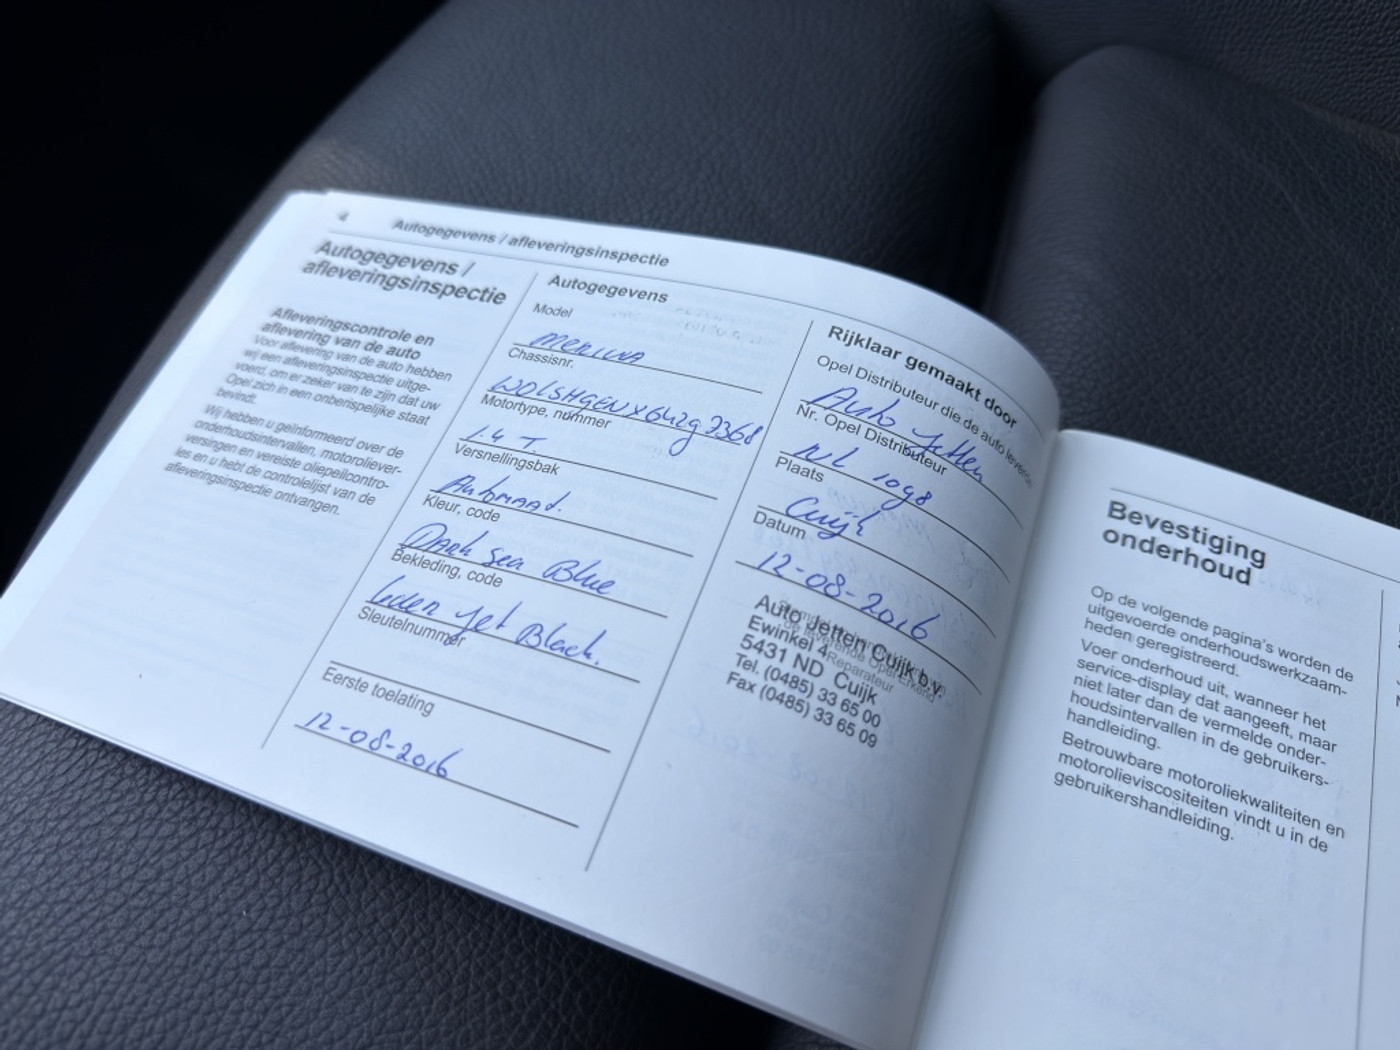 4
Autogegevens / afleveringsinspectie
Autogegevens /
afleveringsinspectie
Afleveringscontrole en
aflevering van de auto
Voor aflevering van de auto hebben
wij een afleveringsinspectie uitge-
voerd, om er zeker van te zijn dat uw
Opel zich in een onberispelijke staat
bevindt.
Wij hebben u geïnformeerd over de
onderhoudsintervallen, motoroliever-
versingen en vereiste oliepeilcontro-
les en u hebt de controlelijst van de
afleveringsinspectie ontvangen.
Autogegevens
Model
Meriva
Chassisnr.
Motortype, nummer
1.4 T.
Versnellingsbak
Automaat.
Kleur, code
Dark Sea Blue
Bekleding, code
Leder Jet Black.
Sleutelnummer
Eerste toelating
12-08-2016
Rijklaar gemaakt door
Opel Distributeur die de auto leverde
Auto Jetten
Nr. Opel Distributeur
NL 1098
Plaats
Cuijk
Datum
12-08-2016
Auto Jetten Cuijk b.v.
Ewinkel 4
5431 ND Cuijk
Tel. (0485) 33 65 00
Fax (0485) 33 65 09
Bevestiging
onderhoud
Op de volgende pagina's worden de
uitgevoerde onderhoudswerkzaam-
heden geregistreerd.
Voer onderhoud uit, wanneer het
service-display dat aangeeft, maar
niet later dan de vermelde onder-
houdsintervallen in de gebruikers-
handleiding.
Betrouwbare motoroliekwaliteiten en
motorolieviscositeiten vindt u in de
gebruikershandleiding.